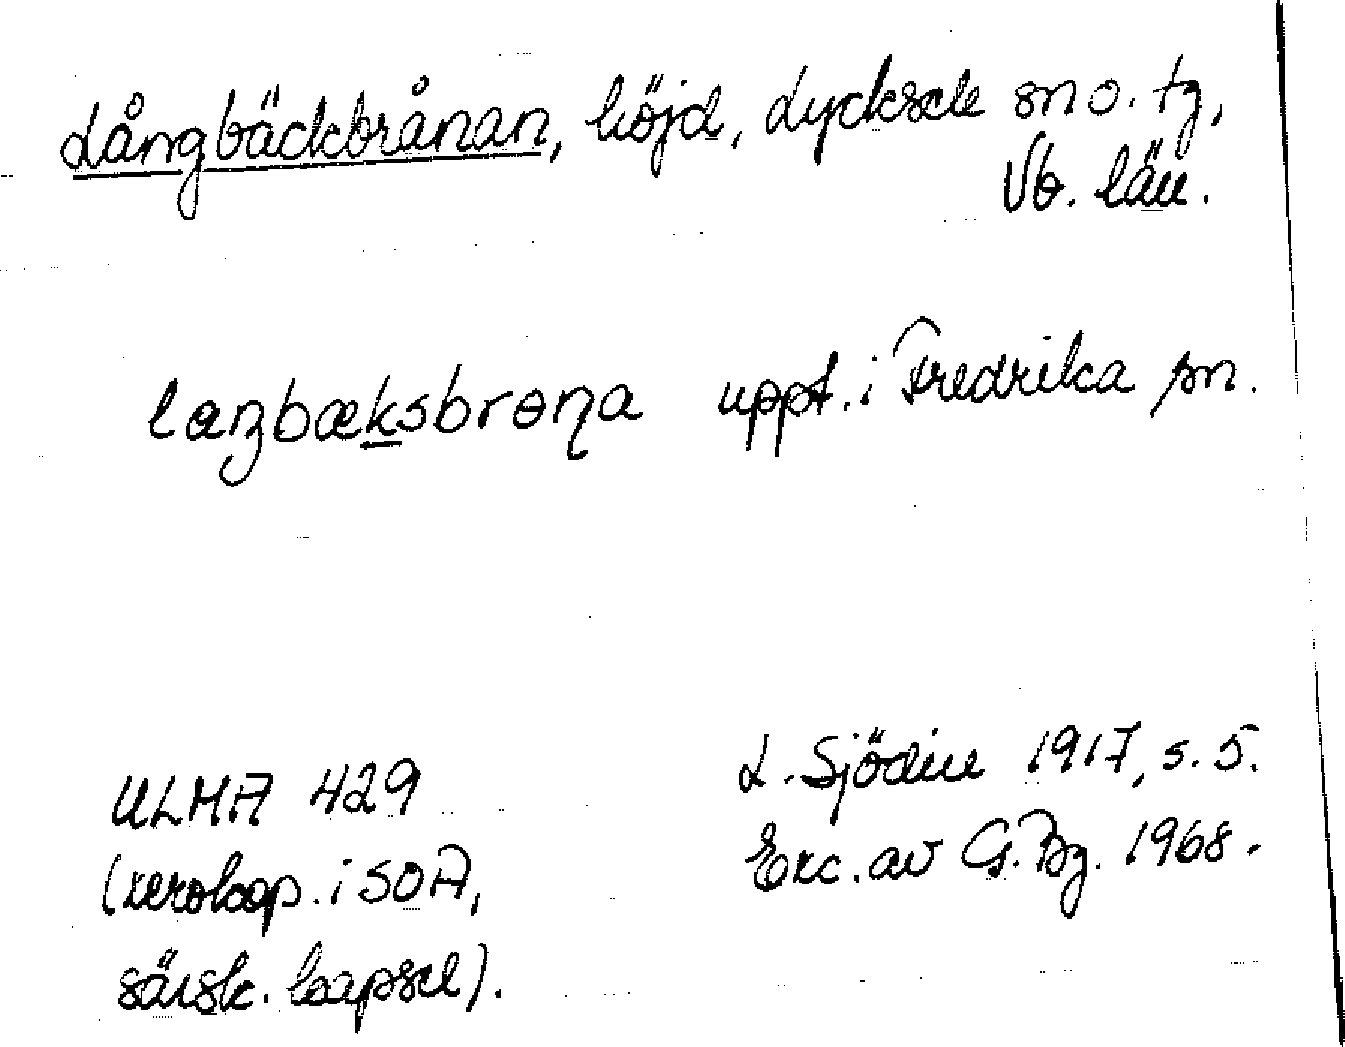 Långbäckbrånan, höjd, Lycksele sn o. tg,
Vb. län.
laŋbæksbrɵɳa uppt. i Fredrika sn.
ULMA 429
(xerokop. i SOA,
särsk. kapsel).
L. Sjödin 1917, s. 5.
Exc. av G. Bg. 1968.